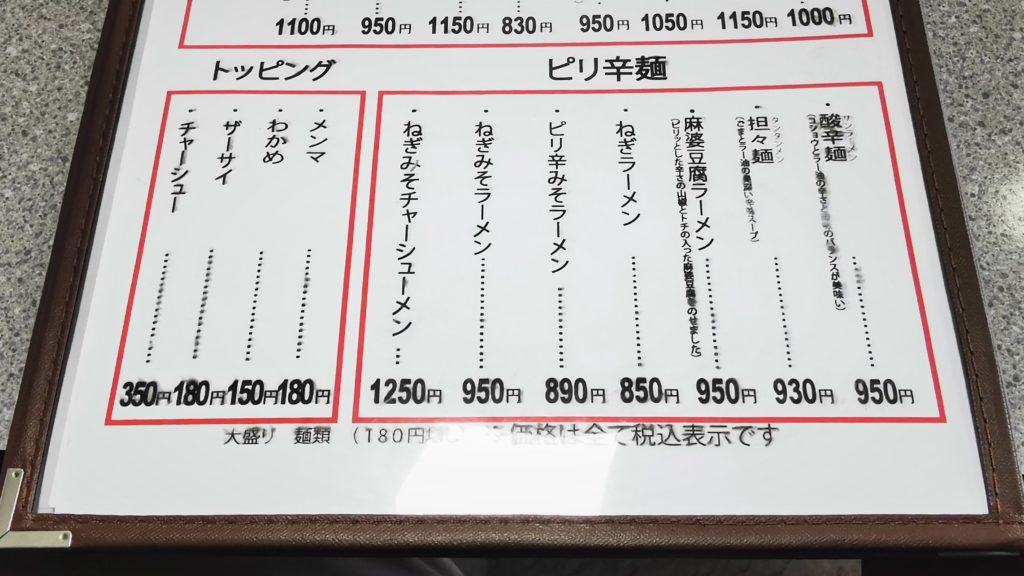 1100円 950円 1150円 830円 950円 1050円 1150円 1000円
ピリ辛麺
・酸辛麺 950円
・担々麺 930円
タンタンメン
・麻婆豆腐ラーメン 950円
(ピリッとした辛さの山椒とトチの入った麻婆豆腐をのせました)
・ねぎラーメン 850円
・ピリ辛みそラーメン 890円
・ねぎみそラーメン 950円
・ねぎみそチャーシューメン 1250円
トッピング
・メンマ 180円
・わかめ 150円
・ザーサイ 180円
・チャーシュー 350円
大盛り 麺類 (180円 価格は全て税込表示です